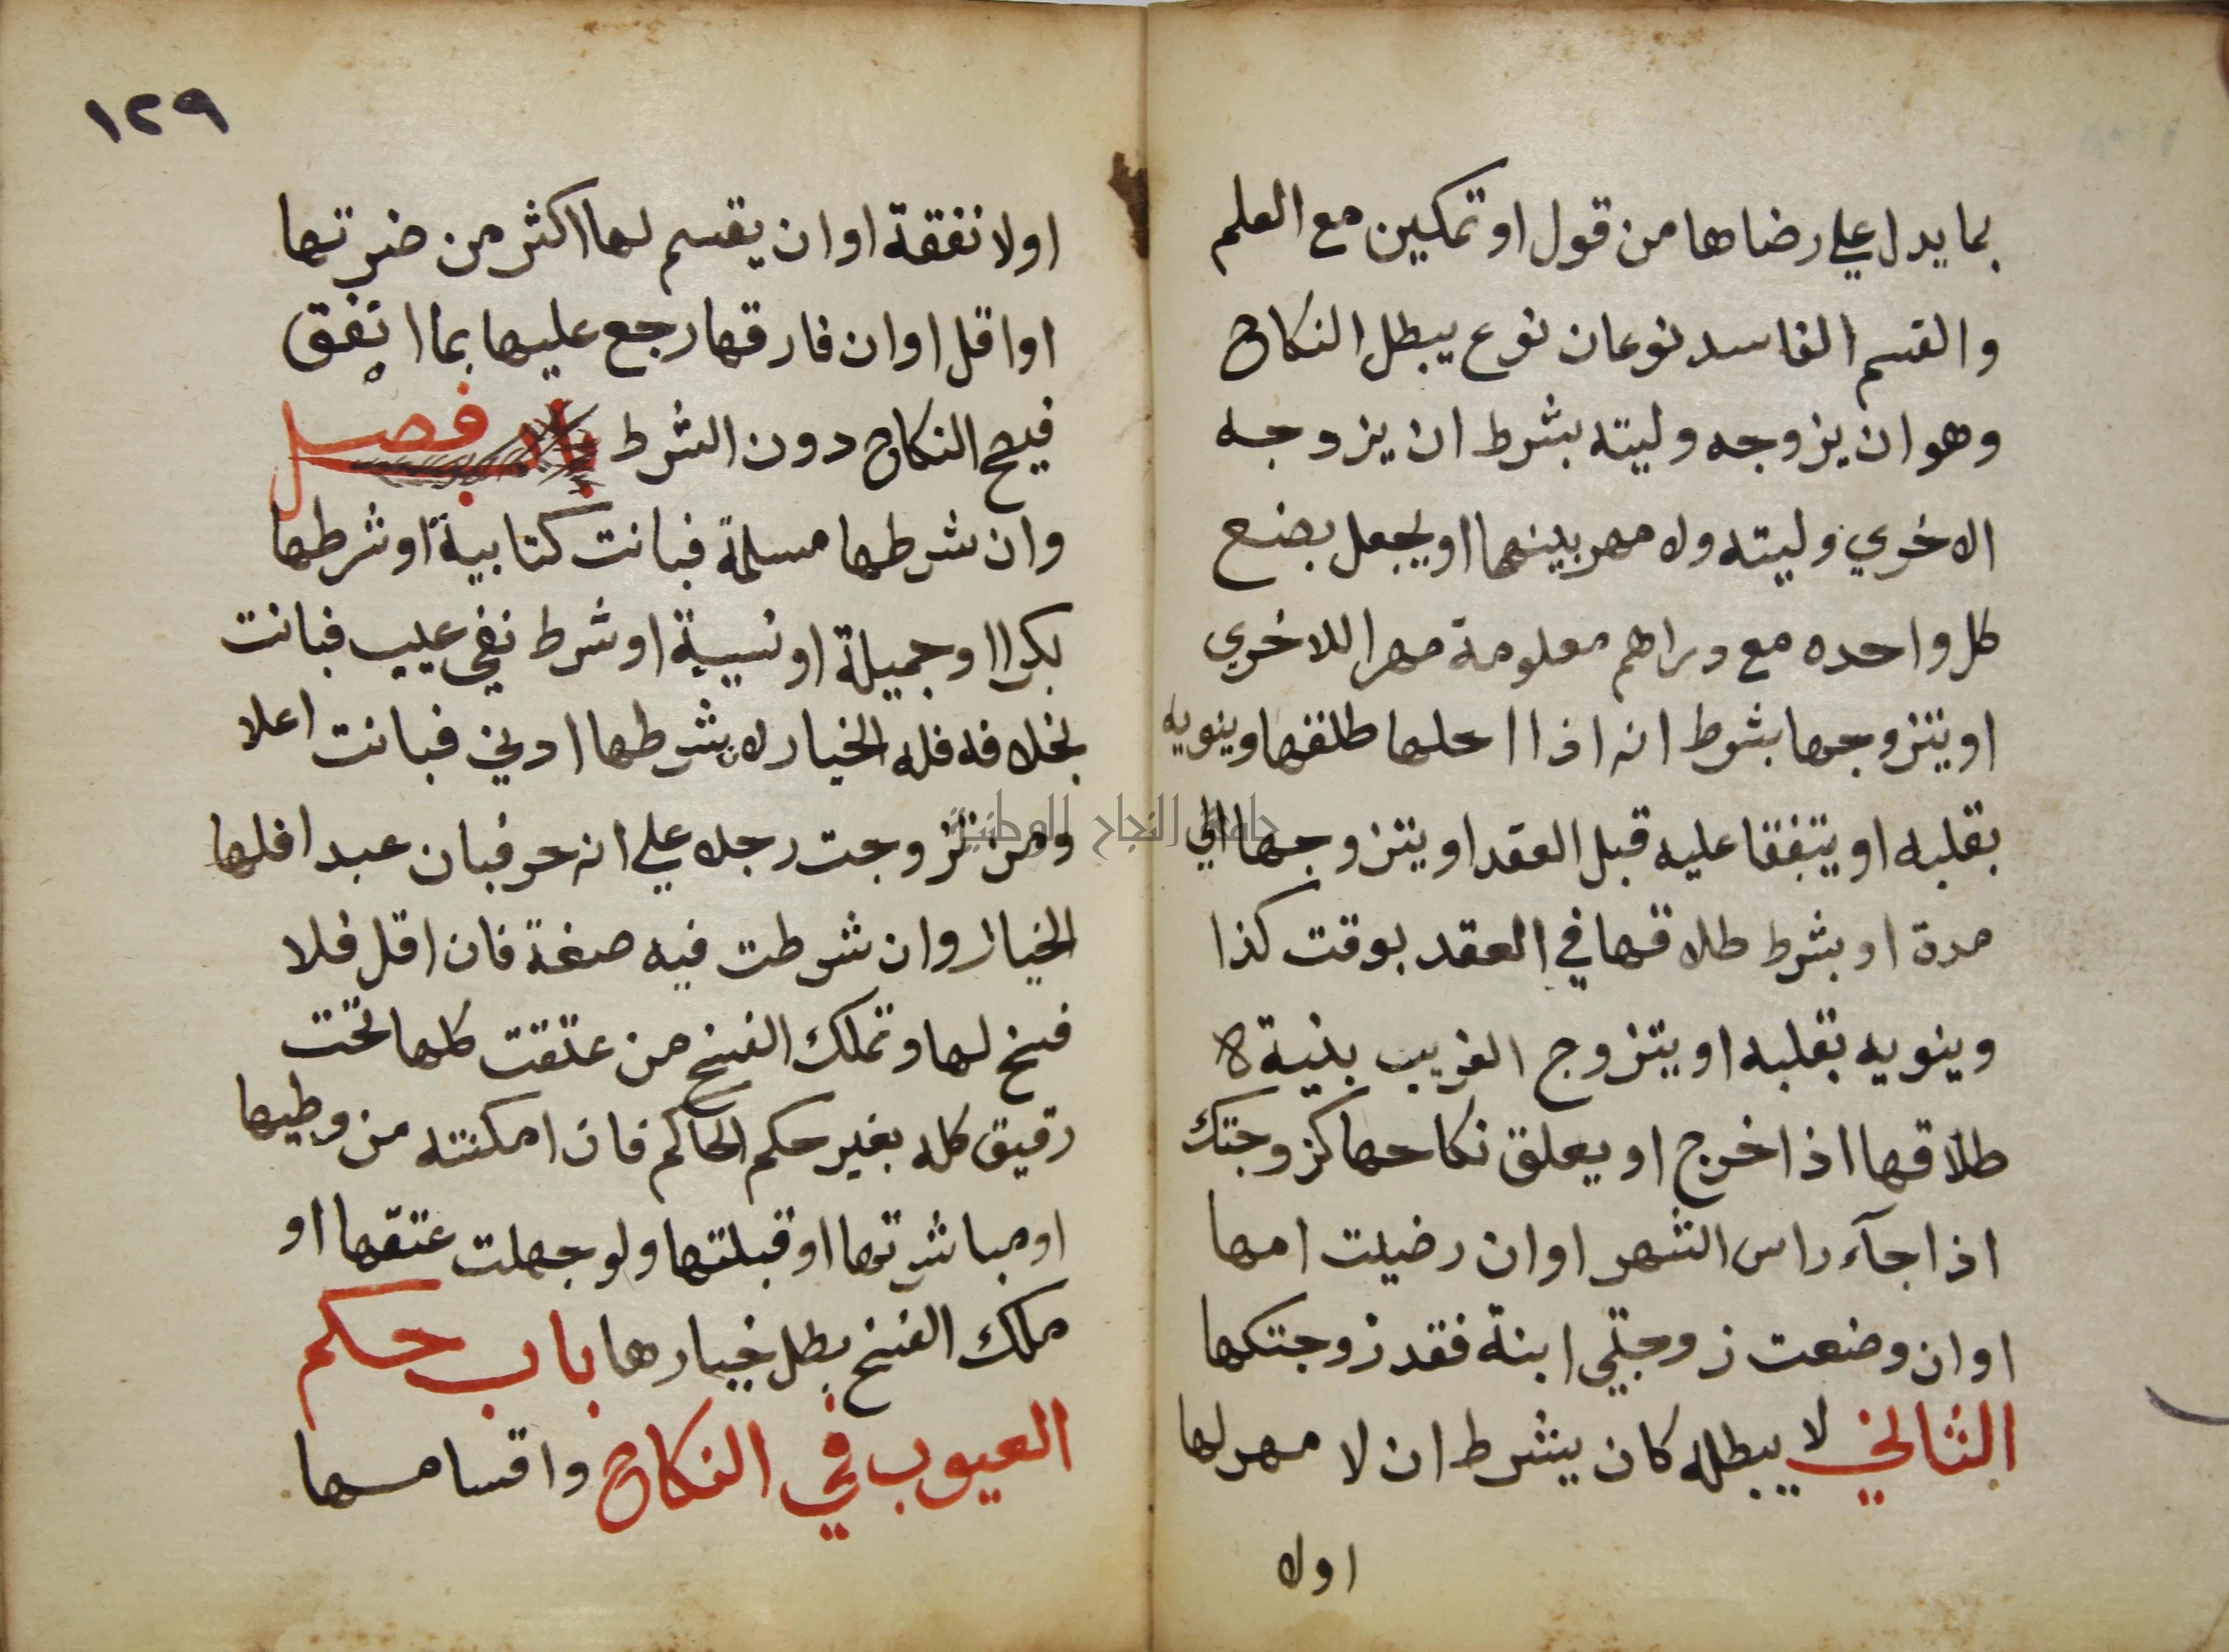 بما يدل علي رضاها من قول او تمكين مع العلم
والقسم الفاسد نوعان نوع يبطل النكاح
وهو ان يزوجه وليته بشرط ان يزوجه
الاخري وليته ولا مهر بينهما او يجعل بضع
كل واحده مع دراهم معلومة مهرا للاخري
او يتزوجها بشرط انه اذا احلها طلقها وينويه
بقلبه او يتفقا عليه قبل العقد او يتزوجها الي
مدة او بشرط طلاقها في العقد بوقت كذا
وينويه بقلبه او يتزوج الغريب بنية
طلاقها اذا خرج او يعلق نكاحها كزوجتك
اذا جآء راس الشهر او ان رضيت امها
او ان وضعت زوجتي ابنة فقد زوجتكها
الثاني لا يبطله كان يشرط ان لا مهر لها
اولا
١٢٩
اولا نفقة او ان يقسم لها اكثر من ضرتها
او اقل او ان فارقها رجع عليها بما انفق
فيصح النكاح دون الشرط باب فصل
وان شرطها مسلمة فبانت كتابية او شرطها
بكرا او جميلة او نسيبة او شرط نفي عيب فبانت
بخلافه فله الخيار لا بشرطها ادني فبانت اعلا
ومن تزوجت رجلا علي انه حر فبان عبدا فلها
الخيار وان شرطت فيه صفة فان اقل فلا
فسخ لها وتملك الفسخ من عتقت كلها تحت
رقيق كله بغير حكم الحاكم فان امكنته من وطيها
او مباشرتها او قبلتها ولو جهلت عتقها او
ملك الفسخ بطل خيارها باب حكم
العيوب في النكاح واقسامها
جامعة النجاح الوطنية